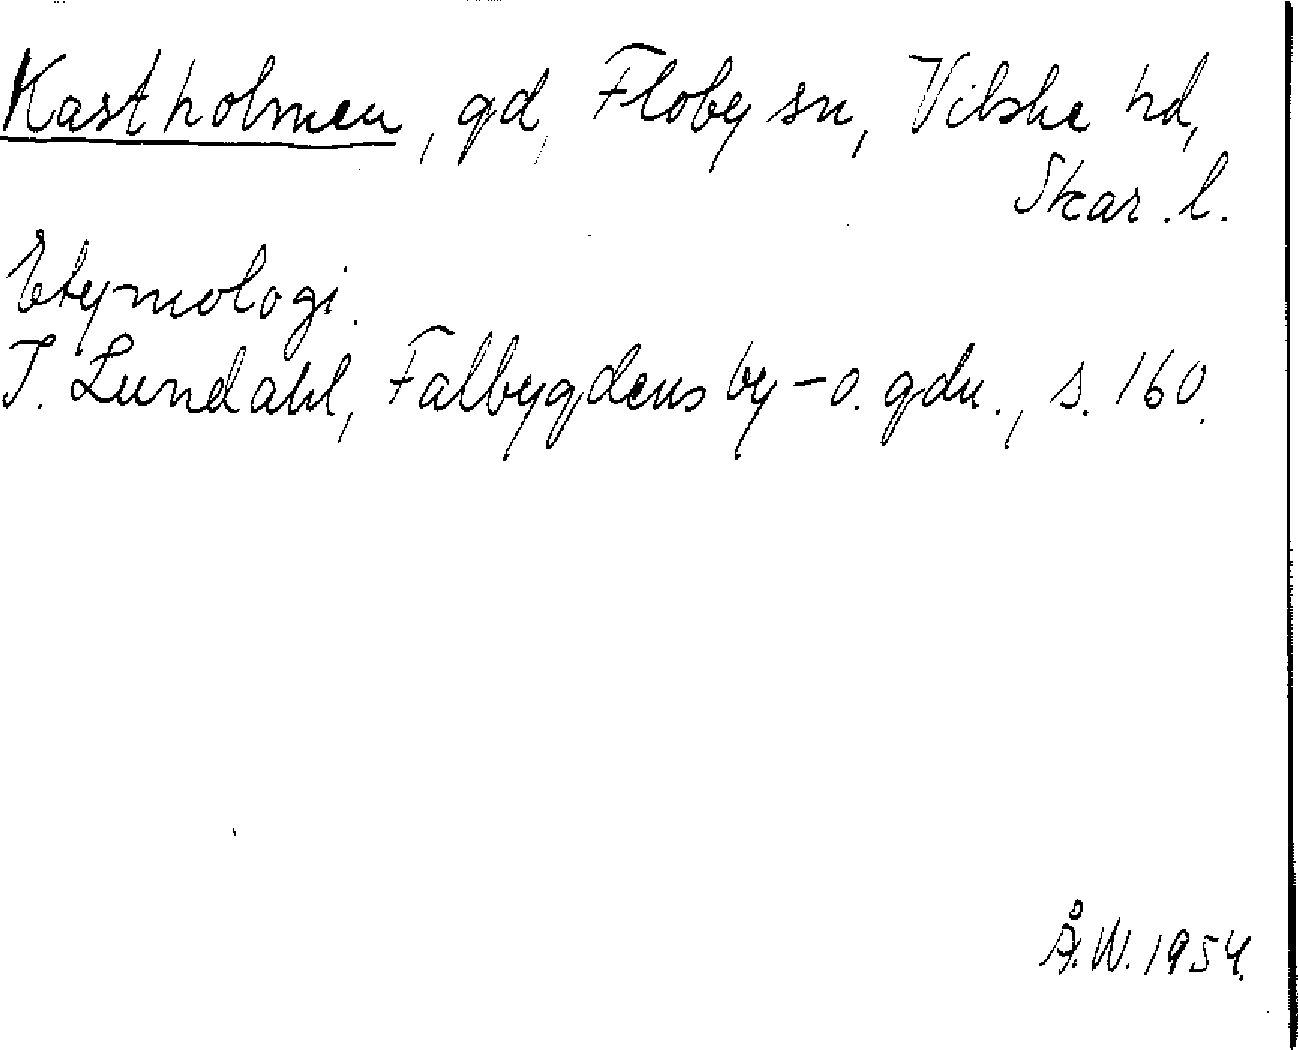 Kastholmen, gd, Floby sn, Vilske hd,
Skar. l.
Etymologi.
I. Lundahl, Falbygdens by- o. gdn., s. 160.
Å.W. 1954.